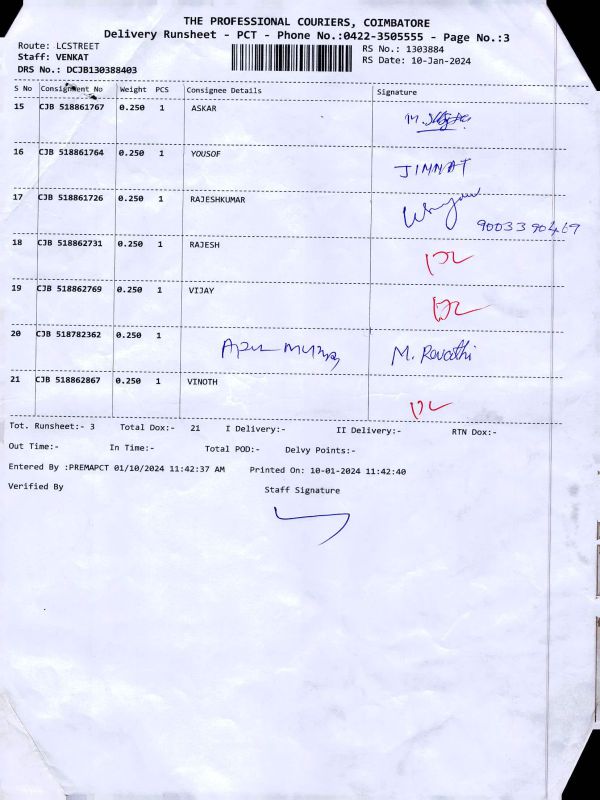 THE PROFESSIONAL COURIERS, COIMBATORE
Delivery Runsheet - PCT - Phone No.:0422-3505555 - Page No.:3
Route: LCSTREET RS No.: 1303884
Staff: VENKAT RS Date: 10-Jan-2024
DRS No.: DCJB130388403
S No Consignment No Weight PCS Consignee Details Signature
15 CJB 518861767 0.250 1 ASKAR
16 CJB 518861764 0.250 1 YOUSOF JINNAT
17 CJB 518861726 0.250 1 RAJESHKUMAR 9003390469
18 CJB 518862731 0.250 1 RAJESH
19 CJB 518862769 0.250 1 VIJAY
20 CJB 518782362 0.250 1 M. Revathi
21 CJB 518862867 0.250 1 VINOTH
Tot. Runsheet:- 3 Total Dox:- 21 I Delivery:- II Delivery:- RTN Dox:-
Out Time:- In Time:- Total POD:- Delvy Points:-
Entered By :PREMAPCT 01/10/2024 11:42:37 AM Printed On: 10-01-2024 11:42:40
Verified By Staff Signature